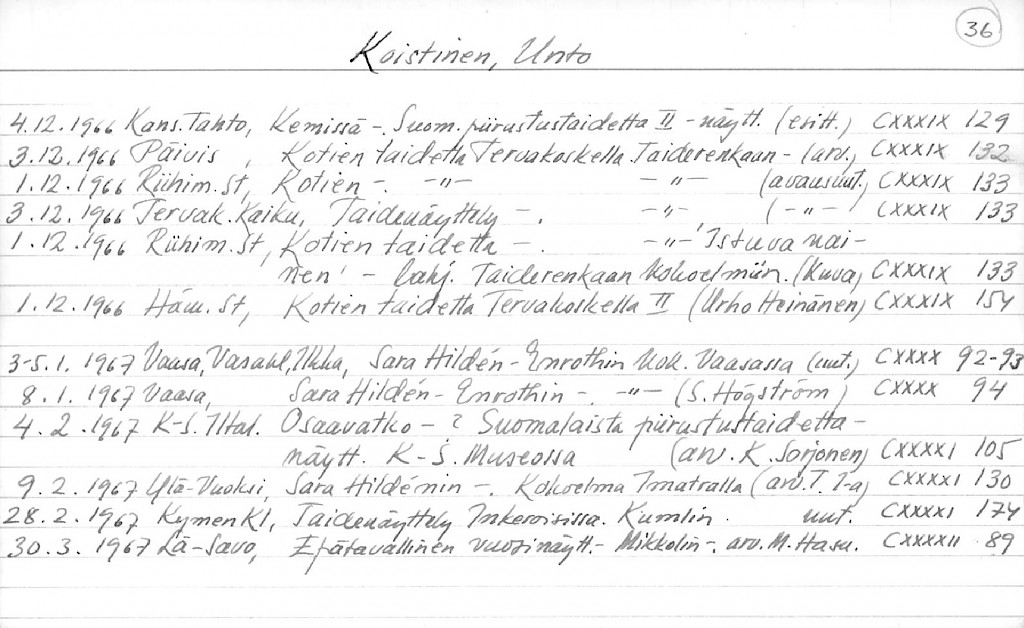 36
Koistinen, Unto
4.12.1966 Kans.Tahto, Kemissä -. Suom. piirustustaidetta II - näytt. (esitt.) CXXXIX 129
3.12.1966 Päivis, Kotien taidetta Tervakoskella Taiderenkaan - (arv.) CXXXIX 132
1.12.1966 Riihim. St, Kotien -. -"- -"- (avausuut.) CXXXIX 133
3.12.1966 Tervak. Kaiku, Taidenäyttely -. -"- (-"-) CXXXIX 133
1.12.1966 Riihim. St, Kotien taidetta -. -"- 'Istuva nai-
nen' - lahj. Taiderenkaan kokoelmiin. (kuva) CXXXIX 133
1.12.1966 Häm. St, Kotien taidetta Tervakoskella II (Urho Heinänen) CXXXIX 154
3-5.1.1967 Vaasa, Vasabl, Ilkka, Sara Hildén - Enrothin kok. Vaasassa (uut.) CXXXX 92-93
8.1.1967 Vaasa, Sara Hildén - Enrothin -. -"- (S. Högström) CXXXX 94
4.2.1967 K-S. Iltal. Osaavatko - ? Suomalaista piirustustaidetta -
näytt. K-S. Museossa (arv. K. Sorjonen) CXXXXI 105
9.2.1967 Ylä-Vuoksi, Sara Hildénin -. Kokoelma Imatralla (arv. T. I-a) CXXXXI 130
28.2.1967 Kymen Kl, Taidenäyttely Inkeroisissa. Kumlin. uut. CXXXXI 174
30.3.1967 Lä-Savo, Epätavallinen vuosinäytt. - Mikkelin -. arv. M. Hasu. CXXXXII 89